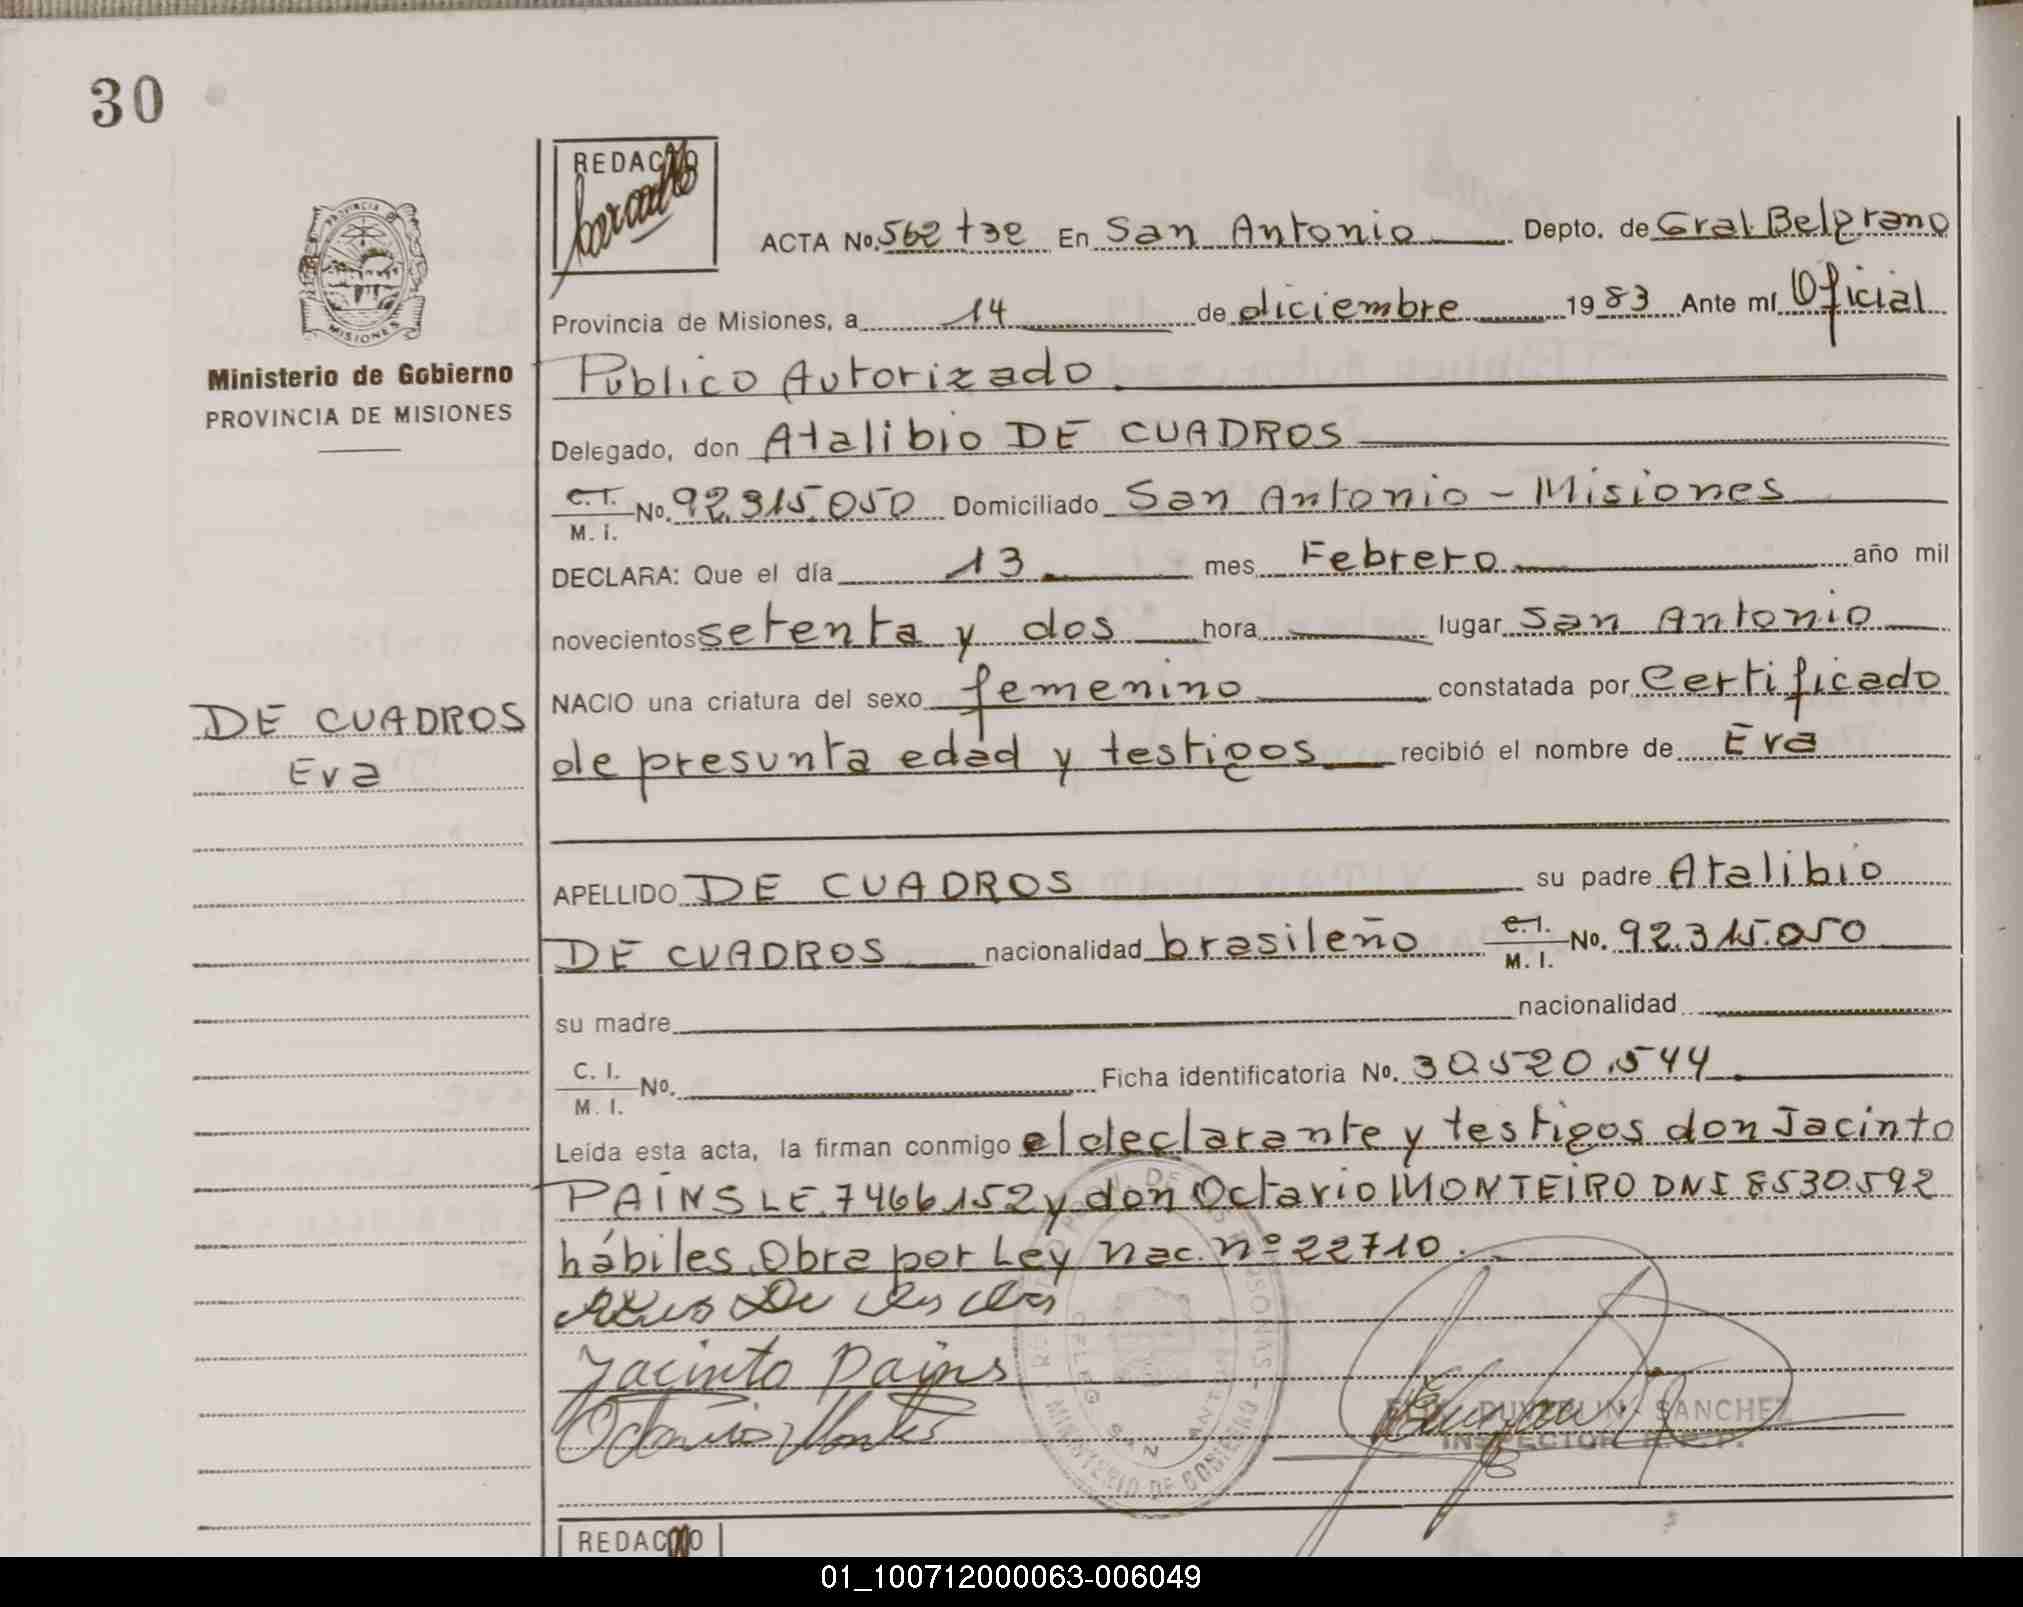 30
REDACTO
ACTA No. 562 t3e En San Antonio Depto. de Gral. Belgrano
Provincia de Misiones, a 14 de diciembre 1983 Ante mí Oficial
Ministerio de Gobierno
PROVINCIA DE MISIONES
Público Autorizado
Delegado, don Atalibio DE CUADROS
C.I. M.I. No. 92.315.050 Domiciliado San Antonio - Misiones
DECLARA: Que el día 13 mes Febrero año mil
novecientos setenta y dos hora lugar San Antonio
NACIO una criatura del sexo femenino constatada por Certificado
DE CUADROS
Eva
de presunta edad y testigos recibió el nombre de Eva
APELLIDO DE CUADROS su padre Atalibio
DE CUADROS nacionalidad brasileño C.I. M.I. No. 92.315.050
su madre nacionalidad
C.I. M.I. No. Ficha identificatoria No. 30.520.544
Leída esta acta, la firman conmigo el declarante y testigos don Jacinto
PAINS LE. 7466152 y don Octavio MONTEIRO DNI 8530.592
hábiles. Obra por Ley Nac. nº 22710.
Jacinto Pains
SANCHEZ
INSPECTOR
MINISTERIO DE GOBIERNO
REDACTO
01_100712000063-006049